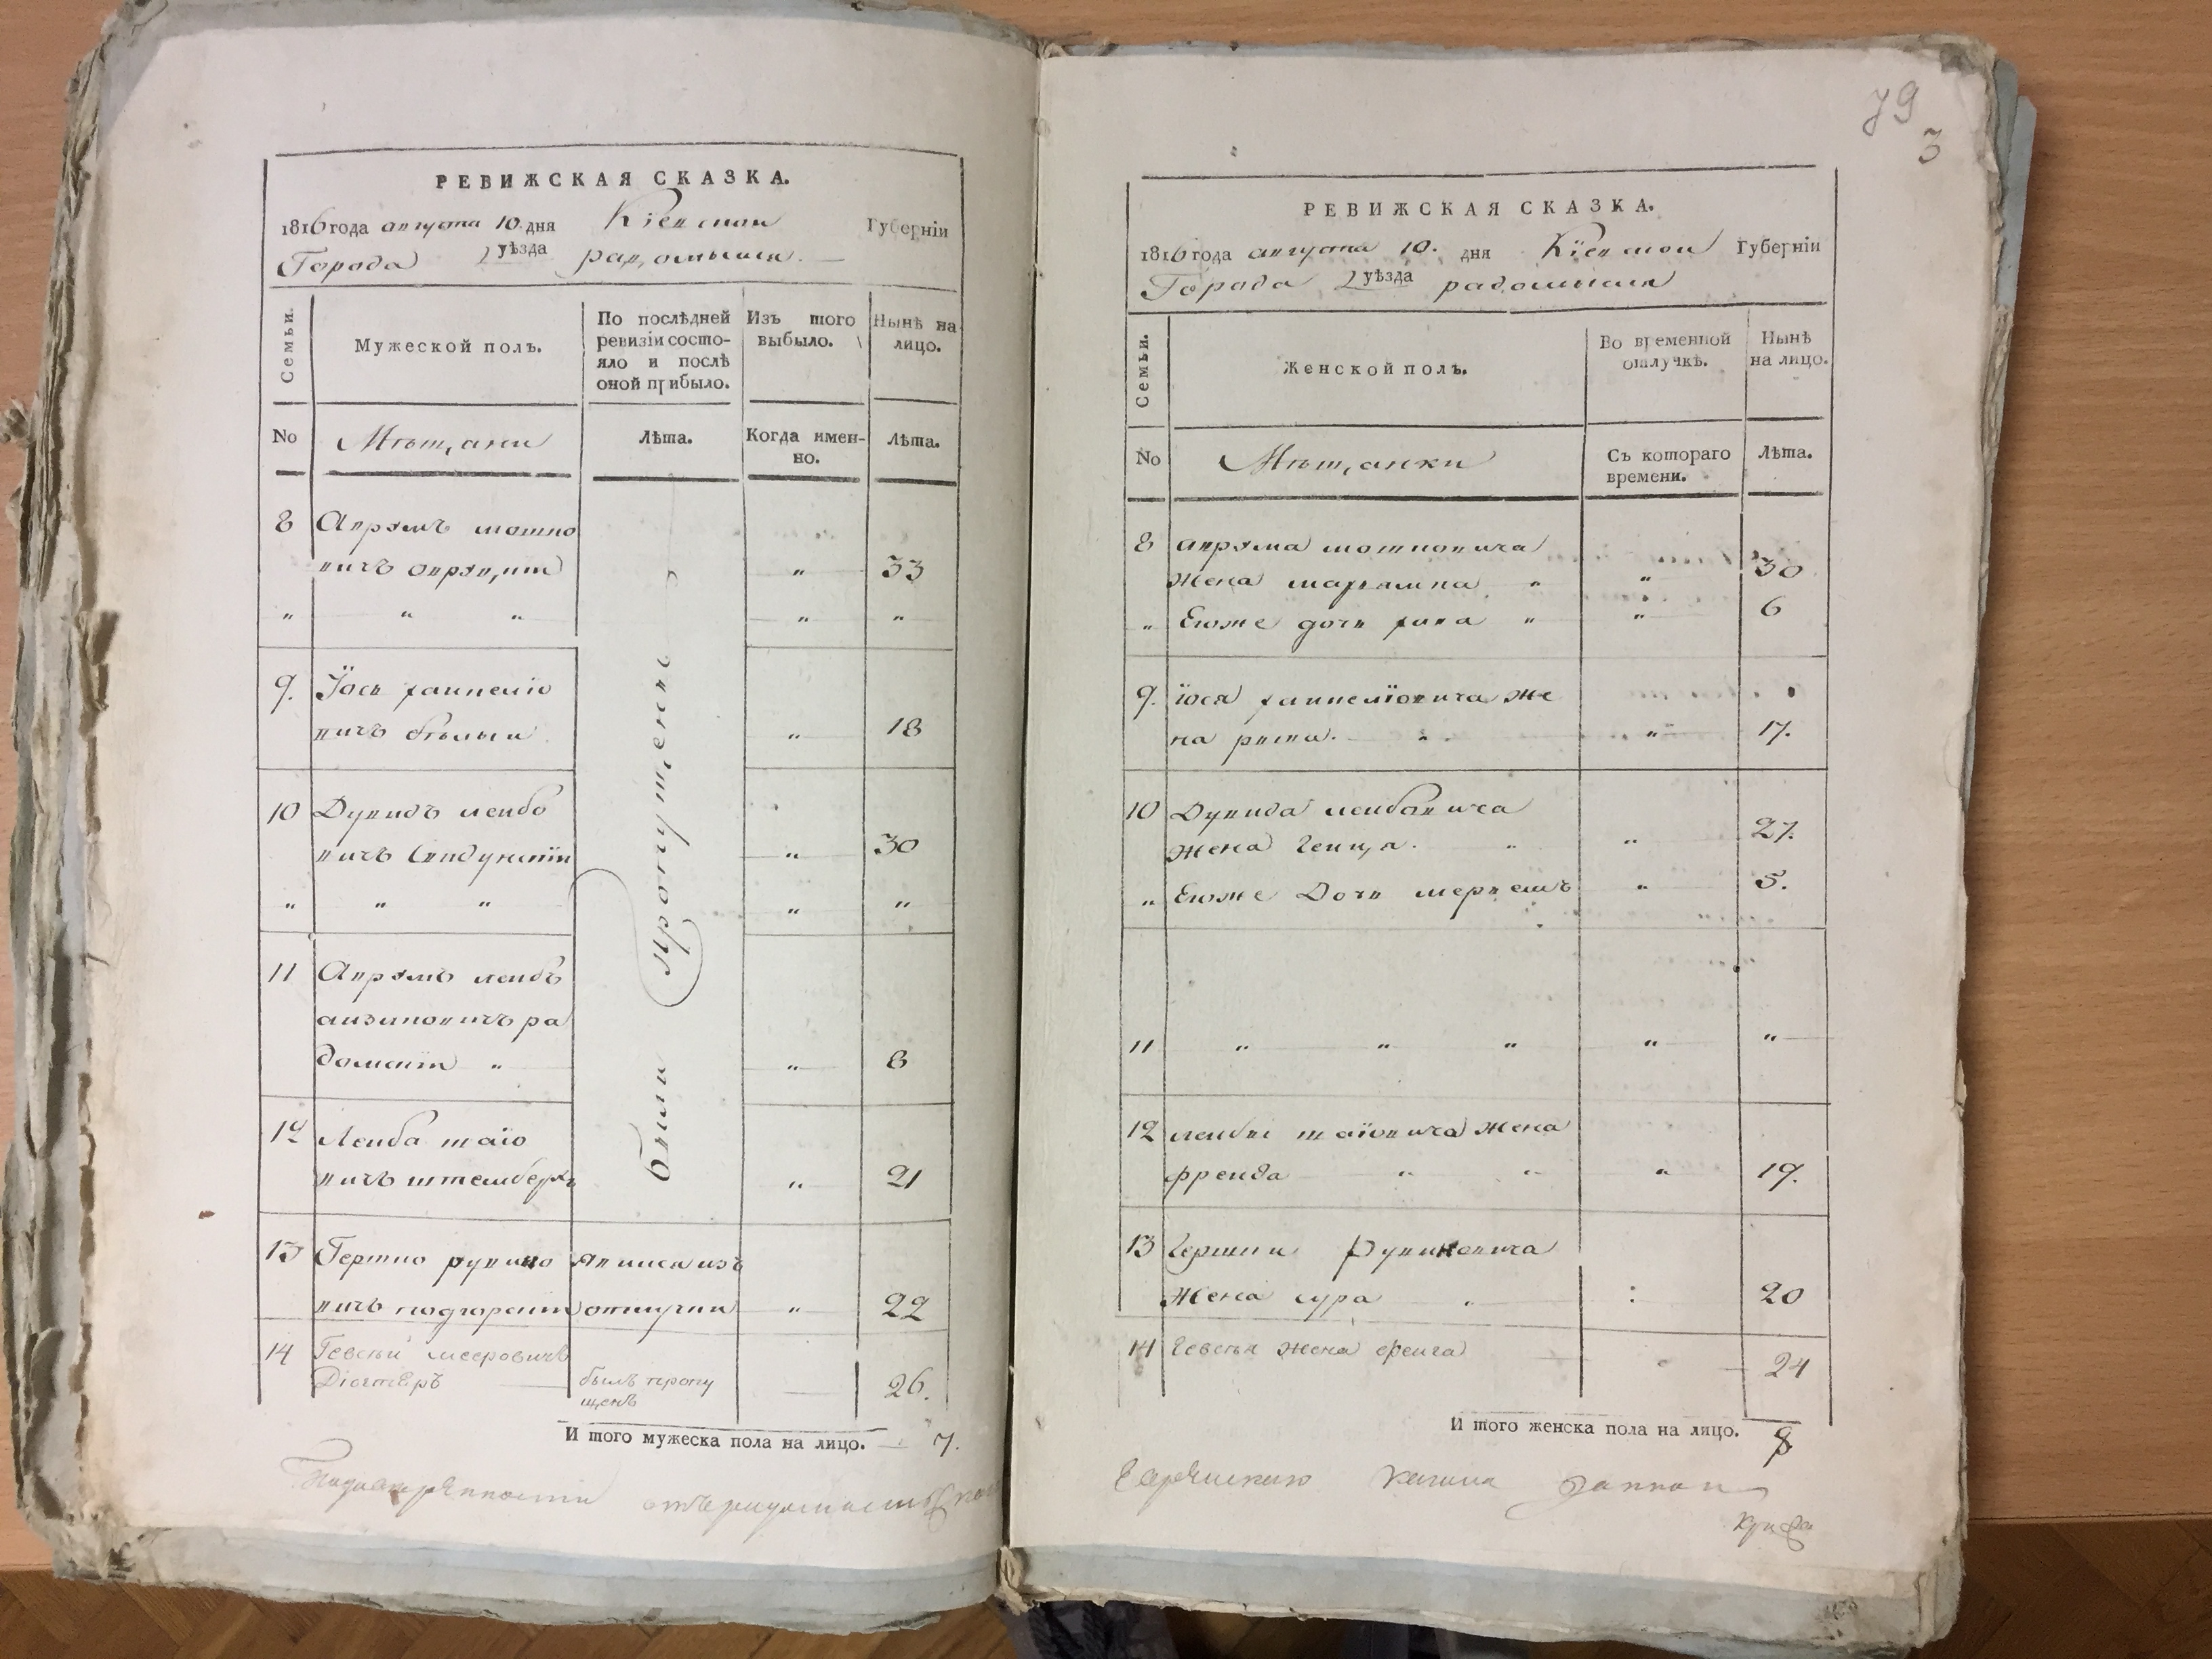 РЕВИЖСКАЯ СКАЗКА.
1816 года августа 10. дня Кіевской Губерніи
Города уѣзда радомысля.
Семьи.
Мужеской полъ.
По послѣдней ревизіи состо-
яло и послѣ
оной прибыло.
Изъ того
выбыло.
Нынѣ на
лицо.
No
Мѣщани
Лѣта.
Когда имен-
но.
Лѣта.
8 Аврумъ мошко
вичъ 33
" " " " "
9. Іось
вичъ " 18
10 Дувидъ лейбо
вичъ " 30
" " " " "
11 Аврумъ лейбъ
айзиковичъ ра
домскій " " 8
12 Лейба шаіо
вичъ штемберъ " 21
были пропущены
13 Гершко рувино явился изъ
вичъ отлучки " 22
14 Гевсѣй мееровичъ
был пропу
щенъ 26.
И того мужеска пола на лицо. 7.
79
3
РЕВИЖСКАЯ СКАЗКА.
1816 года августа 10. дня Кіевской Губерніи
Города уѣзда радомысля
Семьи.
Женской полъ.
Во временной
отлучкѣ.
Нынѣ
на лицо.
No
Мѣщанки
Съ котораго
времени.
Лѣта.
8 аврума мошковича
жена " " 30
" Егоже дочь хива " " 6
9. іося же
на " " 17.
10 Дувида лейбовича
жена " " 27.
" Егоже Дочь " 5.
11 " " " " "
12 лейбы шаіовича жена
фрейда " " " 19.
13 Гершки Рувиновича
Жена сура " : 20
14 Гевсѣя жена фейга 24
И того женска пола на лицо. 8
Еврейскаго кагала